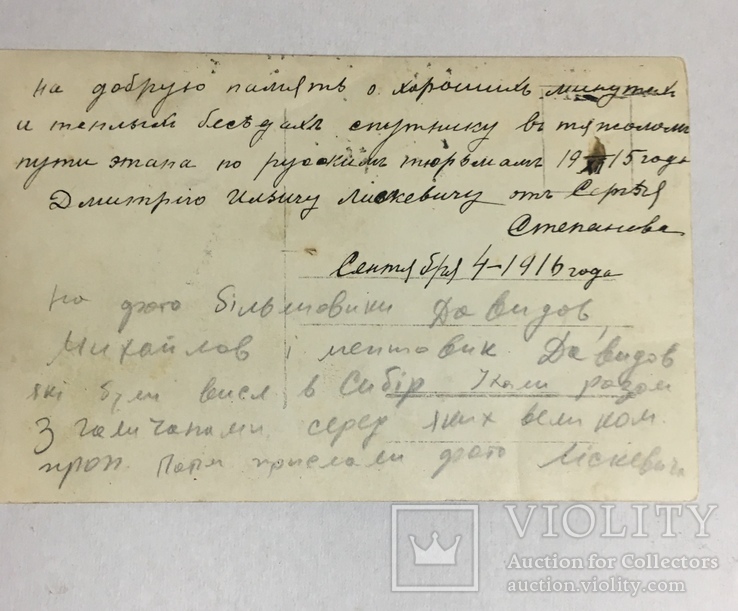 на добрую память о хорошихъ минутах
и теплых бесѣдахъ спутнику въ тяжолом
пути этапа по русскимъ тюрьмамъ 19 XI 15 года
Дмитрію Ильичу Лискевичу отъ Сергѣя
Степанова
Сентября 4-1916 года
на фото більшовики Давидов,
Михайлов і Давидов
які були висл в Сибір їхали разом
з галичанами серед яких
прислали фото Ліскевича
VIOLITY
Auction for Collectors
auction.violity.com